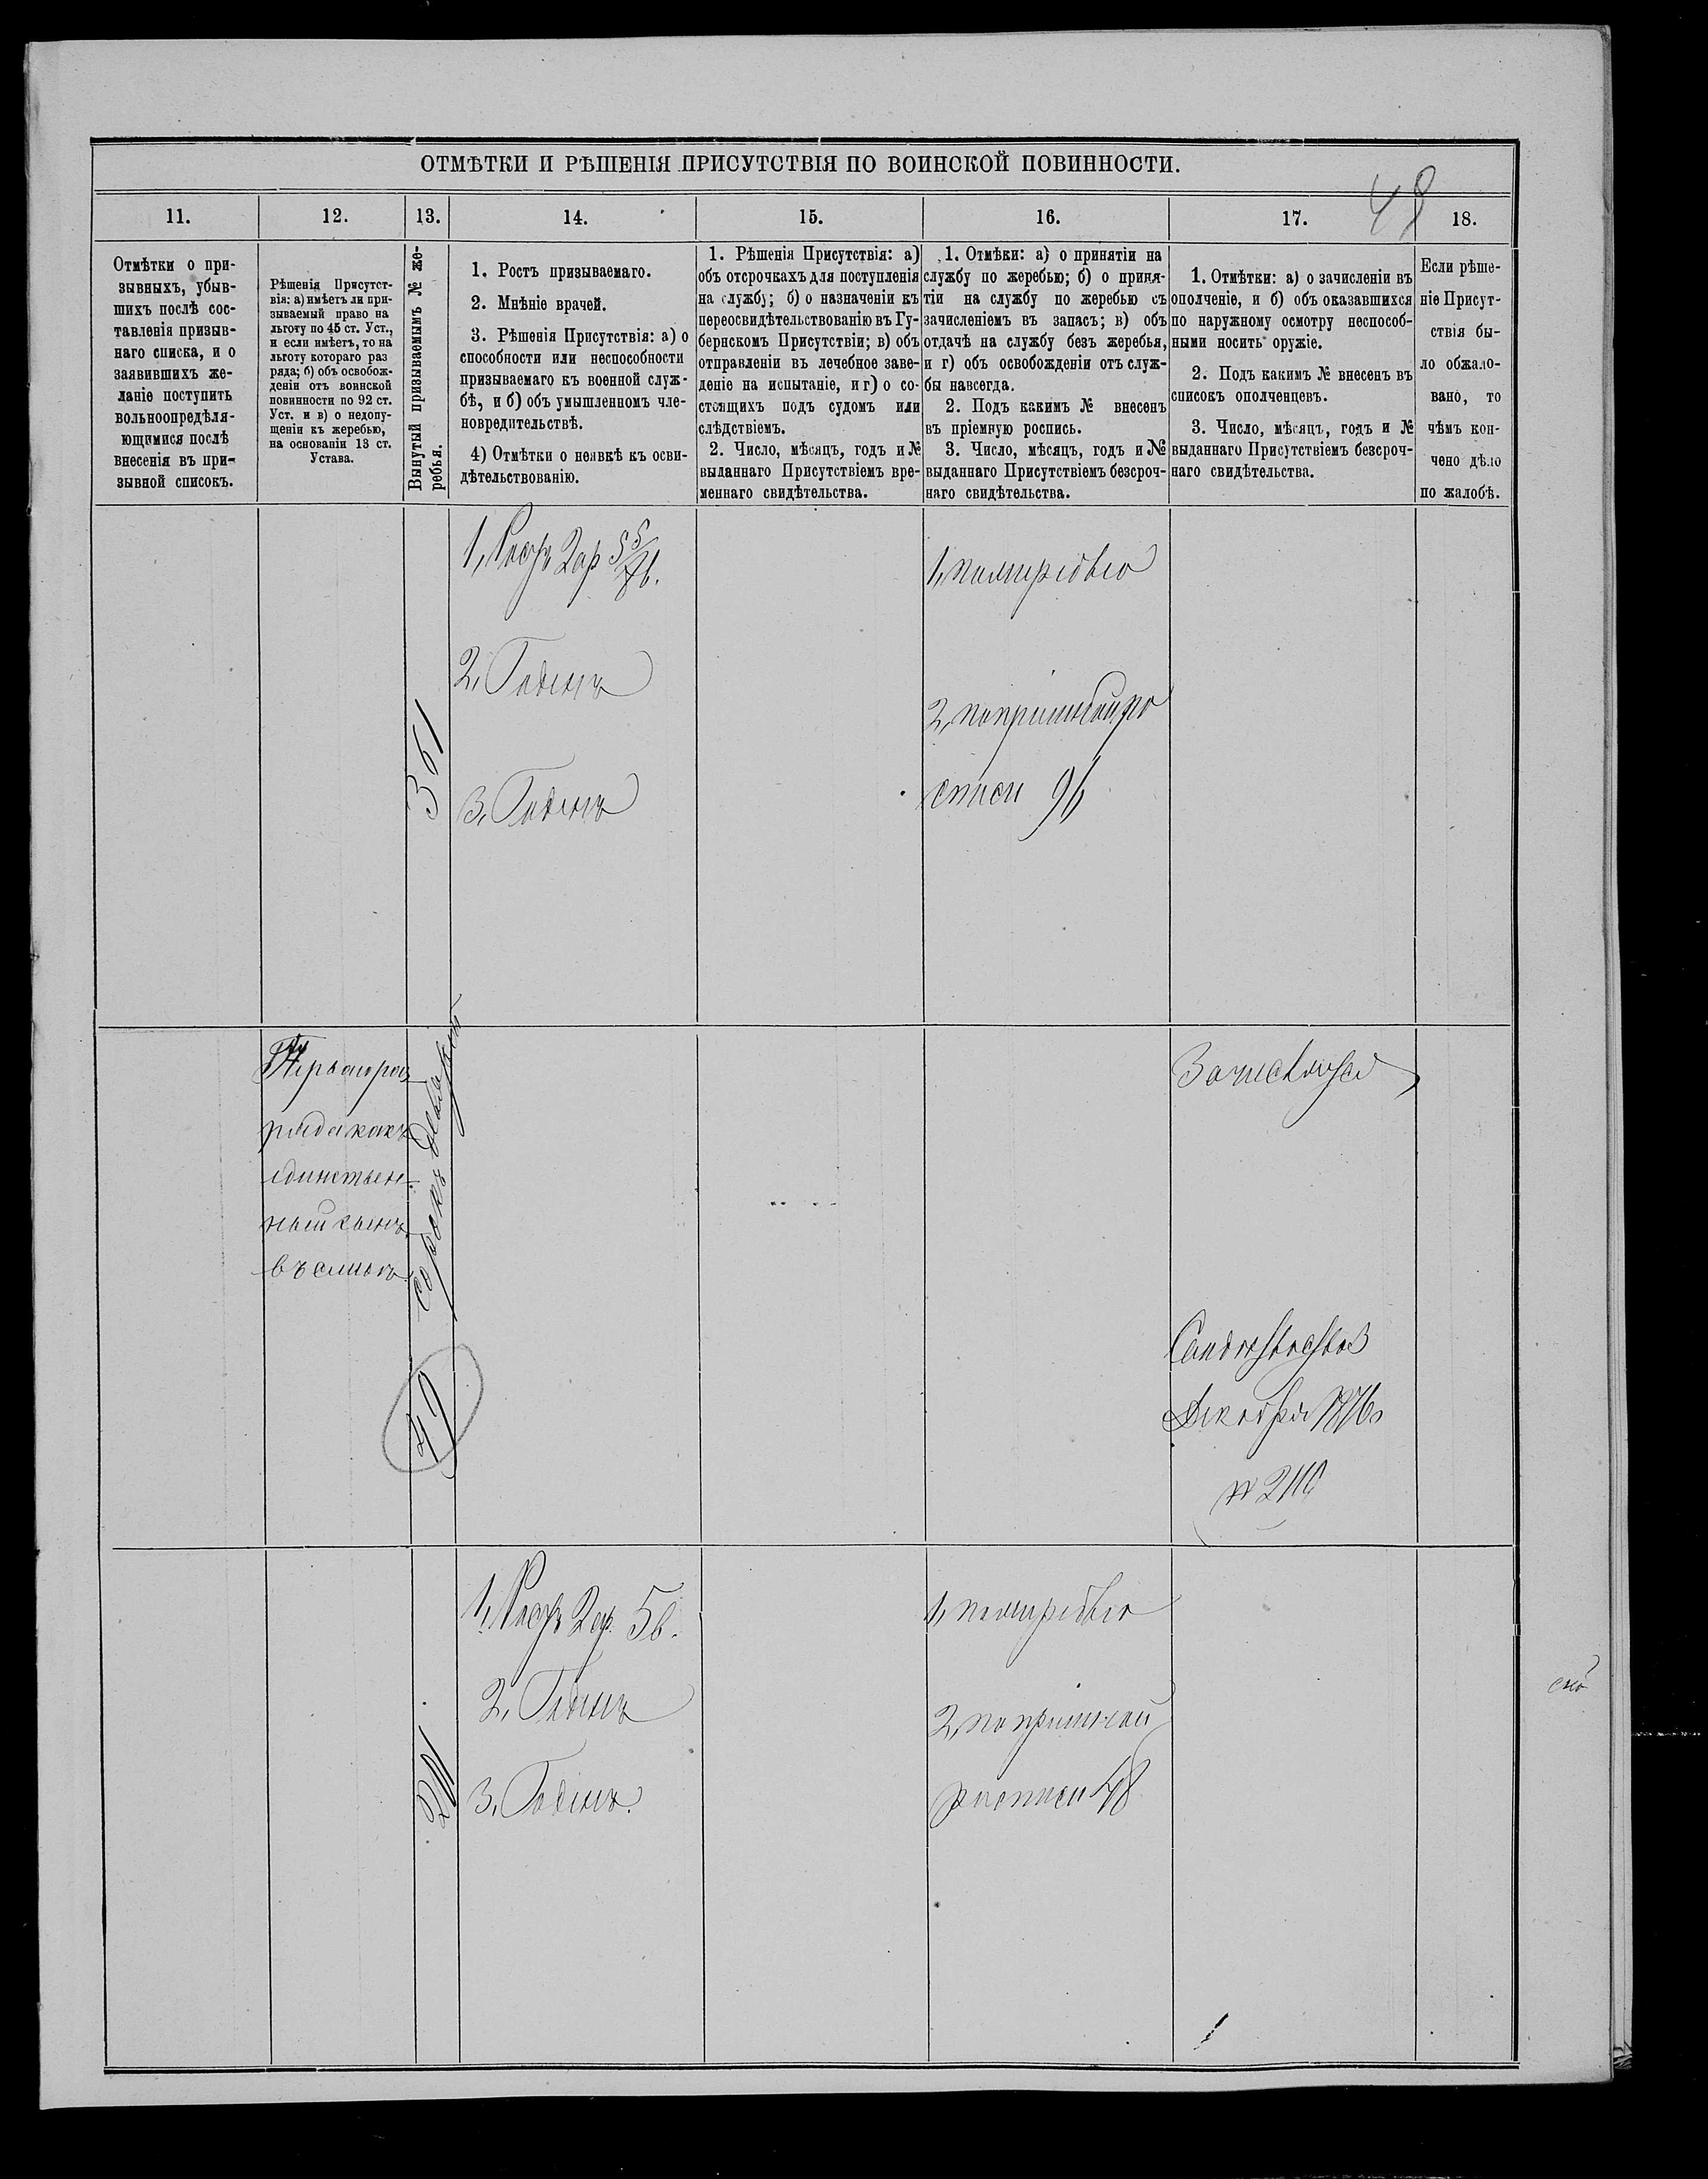 ОТМѢТКИ И РѢШЕНІЯ ПРИСУТСТВІЯ ПО ВОИНСКОЙ ПОВИННОСТИ.
48
11.
12.
13.
14.
15.
16.
17.
18.
Отмѣтки о при-
зывныхъ, убыв-
шихъ послѣ сос-
тавленія призыв-
наго списка, и о
заявившихъ же-
ланіе поступить
вольноопредѣля-
ющимися послѣ
внесенія въ при-
зывной списокъ.
Рѣшенія Присутст-
вія: а) имѣетъ ли при-
зываемый право на
льготу по 45 ст. Уст.,
и если имѣетъ, то на
льготу котораго раз
ряда; б) объ освобож-
деніи отъ воинской
повинности по 92 ст.
Уст. и в) о недопу-
щеніи къ жеребью,
на основаніи 13 ст.
Устава.
Вынутый призываемымъ № же-
ребья.
1. Ростъ призываемаго.
2. Мнѣніе врачей.
3. Рѣшенія Присутствія: а) о
способности или неспособности
призываемаго къ военной служ-
бѣ, и б) объ умышленномъ чле-
новредительствѣ.
4) Отмѣтки о неявкѣ къ осви-
дѣтельствованію.
1. Рѣшенія Присутствія: а)
объ отсрочкахъ для поступленія
на службу; б) о назначеніи къ
переосвидѣтельствованію въ Гу-
бернскомъ Присутствіи; в) объ
отправленіи въ лечебное заве-
деніе на испытаніе, и г) о со-
стоящихъ подъ судомъ или
слѣдствіемъ.
2. Число, мѣсяцъ, годъ и №
выданнаго Присутствіемъ вре-
меннаго свидѣтельства.
1. Отмѣки: а) о принятіи на
службу по жеребью; б) о приня-
тіи на службу по жеребью съ
зачисленіемъ въ запасъ; в) объ
отдачѣ на службу безъ жеребья,
и г) объ освобожденіи отъ служ-
бы навсегда.
2. Подъ какимъ № внесенъ
въ пріемную роспись.
3. Число, мѣсяцъ, годъ и №
выданнаго Присутствіемъ безсроч-
наго свидѣтельства.
1. Отмѣтки: а) о зачисленіи въ
ополченіе, и б) объ оказавшихся
по наружному осмотру неспособ-
ными носить оружіе.
2. Подъ какимъ № внесенъ въ
списокъ ополченцевъ.
3. Число, мѣсяцъ, годъ и №
выданнаго Присутствіемъ безсроч-
наго свидѣтельства.
Если рѣше-
ніе Присут-
ствія бы-
ло обжало-
вано, то
чѣмъ кон-
чено дѣло
по жалобѣ.
361
1, Ростъ 2 ар 5 5/8 в.
2, Годенъ
3, Годенъ
1, по жеребью
2, по пріемной ро
списи 96
Перваго раз
ряда какъ
единствен-
ный сынъ
въ семьѣ
Сорокъ девятый
49
Зачисляется
Декабря 1876
№ 2110
211
1, Ростъ 2 ар. 5 в.
2, Годенъ
3, Годенъ.
1, по жеребью
2, по пріемной
росписи 48